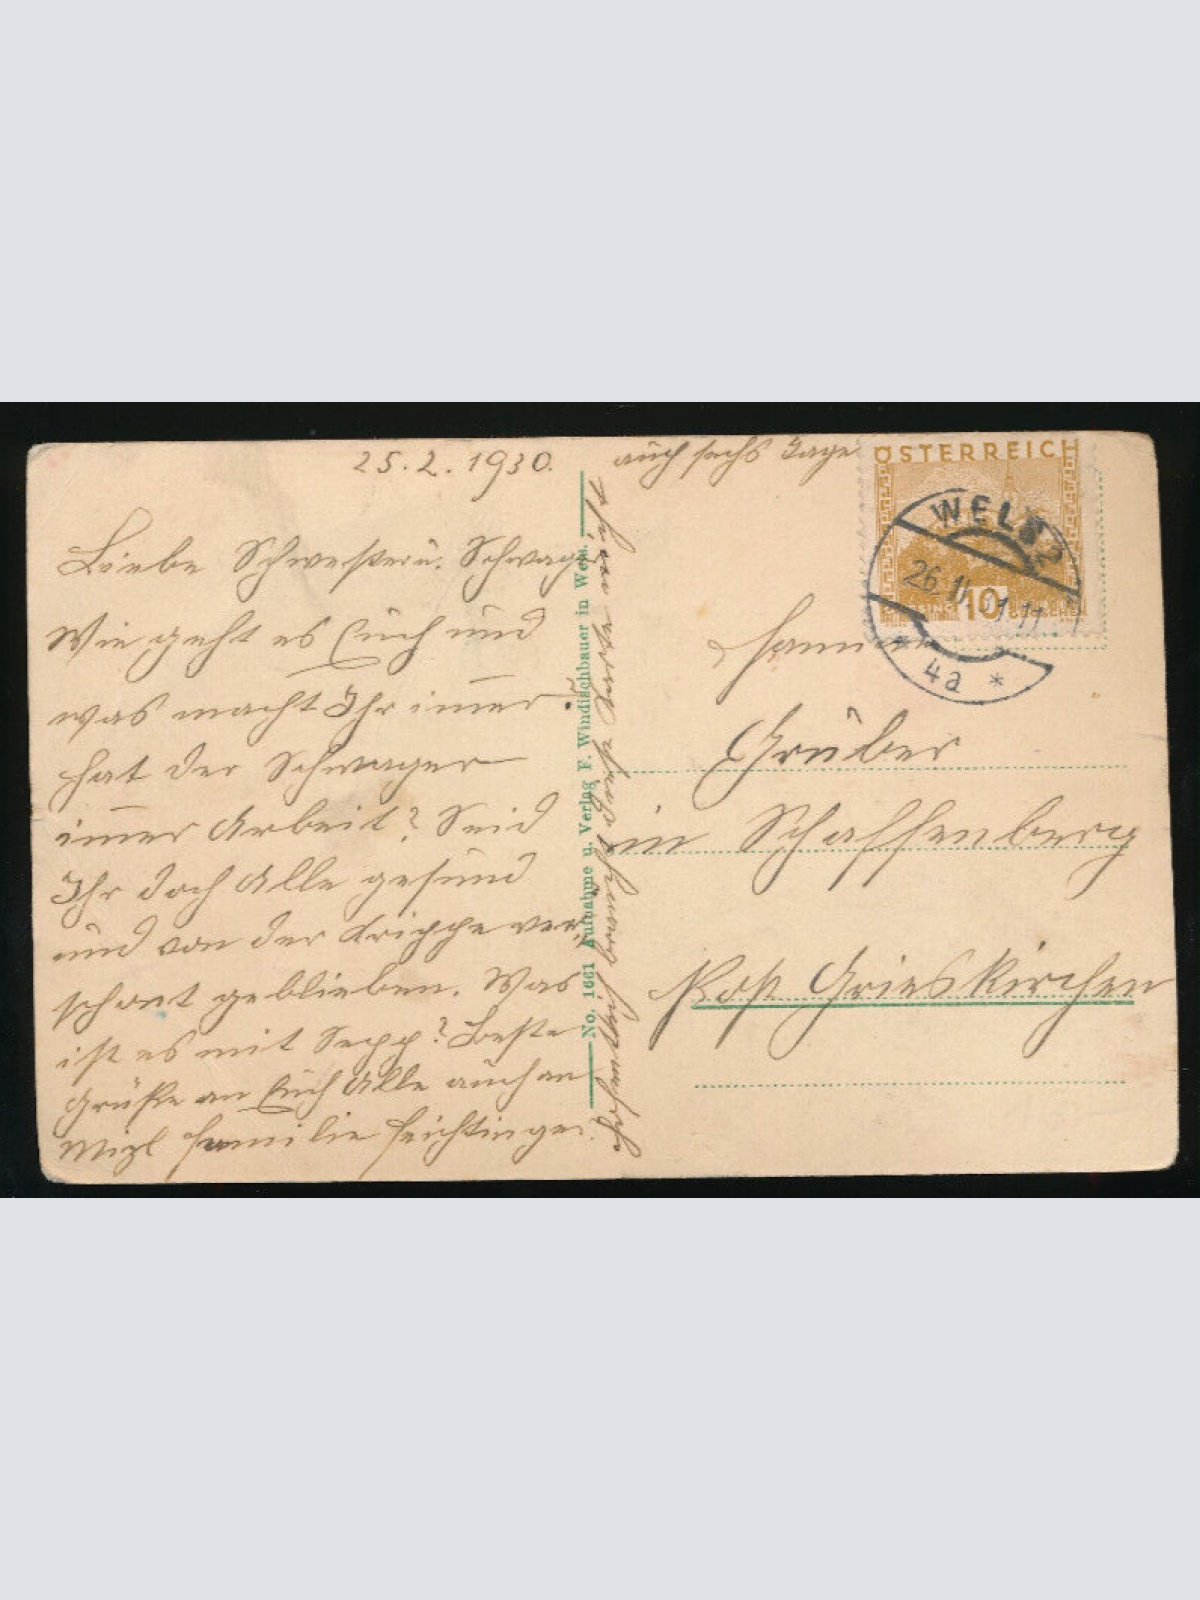 25. 2. 1930.
auch sechs Tage
Liebe Schwester u. Schwager
Wie geht es Euch und
was macht Ihr immer?
hat der Schwager
immer Arbeit? Seid
Ihr doch Alle gesund
und von der Krippe ver-
schont geblieben. Was
ist es mit Sepp? Beste
Grüße an Euch Alle auch an
Mizl Familie Feichtinger.
No. 1661 Aufnahme u. Verlag F. Windischbauer in Wels.
ÖSTERREICH
10
WELS 2
26. II
* 4a *
Gruber
in Schaffenberg
Post Grieskirchen